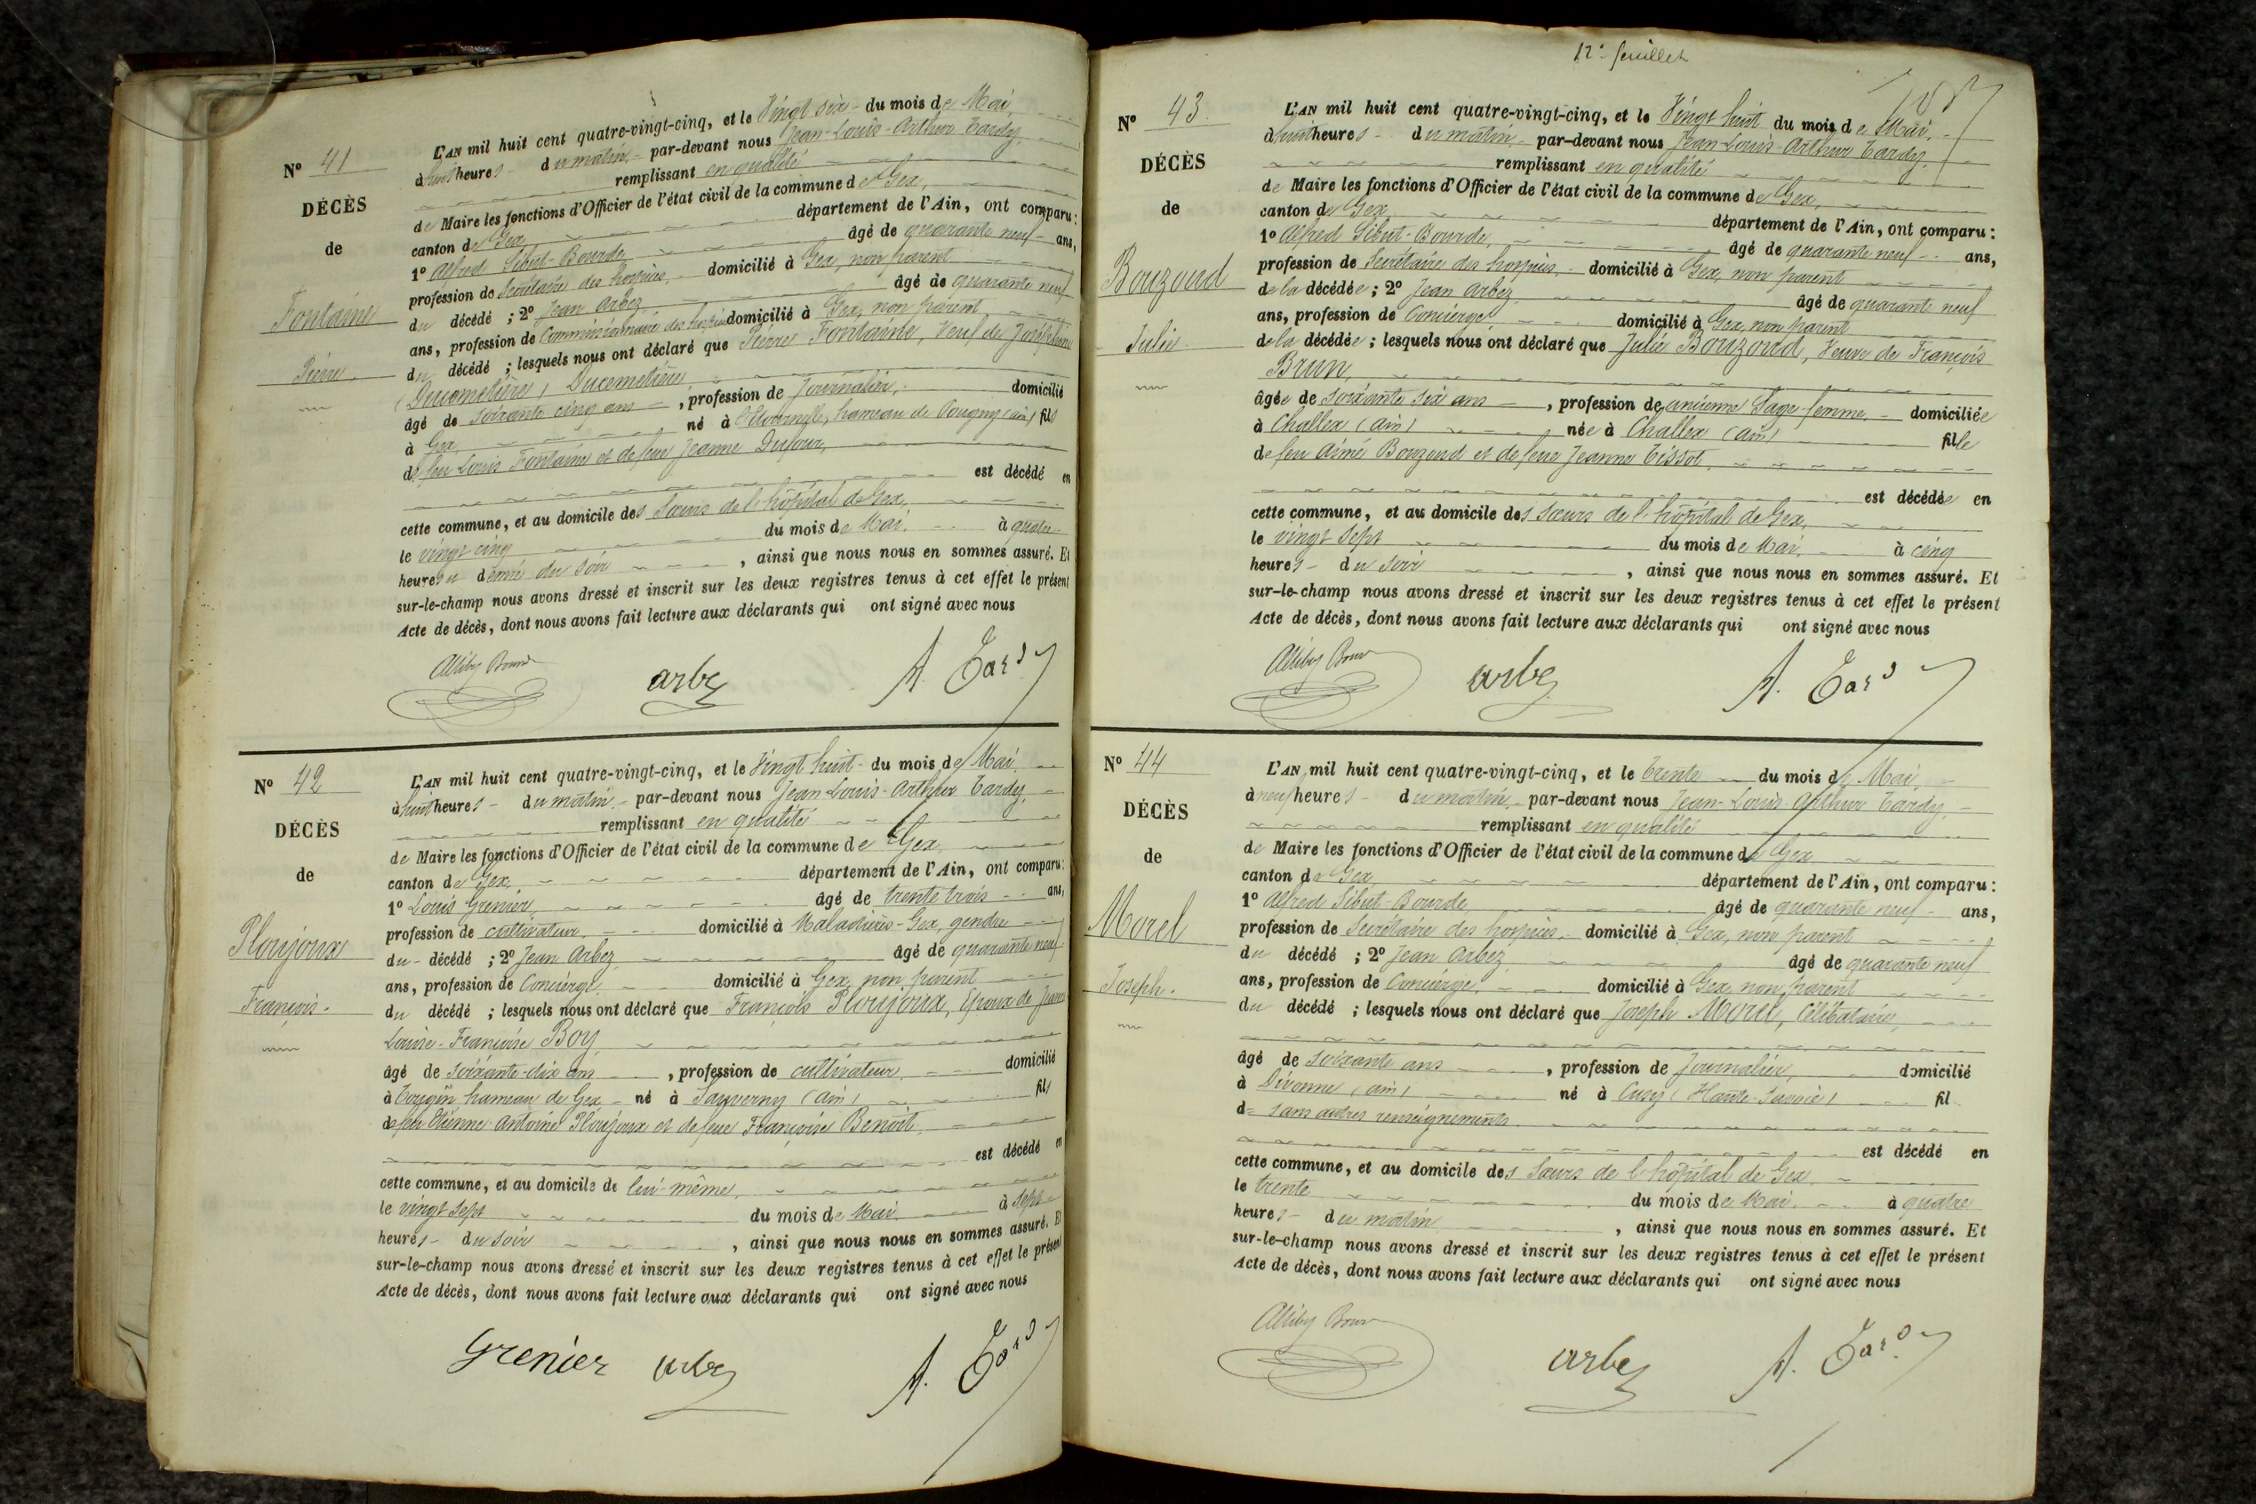 N° 41
DÉCÈS
de
Fontaine
Pierre
L'AN mil huit cent quatre-vingt-cinq, et le Vingt six du mois de Mai
à huit heures du matin, par-devant nous Jean-Louis-Arthur Tardy
remplissant en qualité
de Maire les fonctions d'Officier de l'état civil de la commune de Gex,
canton de Gex département de l'Ain, ont comparu :
1° Alfred Sibut-Bourde âgé de quarante neuf ans,
profession de Secrétaire des hospices, domicilié à Gex, non parent
du décédé ; 2° Jean Arbez âgé de quarante neuf
ans, profession de Commissionnaire des hospices domicilié à Gex, non parent
du décédé ; lesquels nous ont déclaré que Pierre Fontaine, Veuf de Joséphine
(Ducometière) Ducemetière
âgé de soixante cinq ans, profession de Journalier, domicilié
à Gex, né à hameau de Pougny (ain) fils
de feu Louis Fontaine et de feue Jeanne Dufour,
est décédé en
cette commune, et au domicile des Sœurs de l'hôpital de Gex,
le vingt cinq du mois de Mai à quatre
heures et demie du soir, ainsi que nous nous en sommes assuré. Et
sur-le-champ nous avons dressé et inscrit sur les deux registres tenus à cet effet le présent
Acte de décès, dont nous avons fait lecture aux déclarants qui ont signé avec nous
arbez A. Tardy
N° 42
DÉCÈS
de
Ploujoux
François
L'AN mil huit cent quatre-vingt-cinq, et le Vingt huit du mois de Mai
à huit heures du matin, par-devant nous Jean-Louis-Arthur Tardy,
remplissant en qualité
de Maire les fonctions d'Officier de l'état civil de la commune de Gex
canton de Gex, département de l'Ain, ont comparu :
1° Louis Grenier, âgé de trente trois ans,
profession de cultivateur, domicilié à Maladières-Gex, gendre
du décédé ; 2° Jean Arbez âgé de quarante neuf
ans, profession de Concierge domicilié à Gex, non parent
du décédé ; lesquels nous ont déclaré que François Ploujoux, époux de Jeanne
Louise-Françoise Boy
âgé de soixante-dix ans, profession de cultivateur domicilié
à Tougin hameau de Gex né à Sauverny (ain) fils
de feu Etienne-Antoine Ploujoux et de feue Françoise Benoit
est décédé en
cette commune, et au domicile de lui-même,
le vingt sept du mois de Mai à sept
heures du soir, ainsi que nous nous en sommes assuré. Et
sur-le-champ nous avons dressé et inscrit sur les deux registres tenus à cet effet le présent
Acte de décès, dont nous avons fait lecture aux déclarants qui ont signé avec nous
Grenier arbez A. Tardy
12e feuillet
N° 43
DÉCÈS
de
Bouzoud
Julie
L'AN mil huit cent quatre-vingt-cinq, et le Vingt huit du mois de Mai,
à huit heures du matin, par-devant nous Jean-Louis-Arthur Tardy,
remplissant en qualité
de Maire les fonctions d'Officier de l'état civil de la commune de Gex,
canton de Gex département de l'Ain, ont comparu :
1° Alfred Sibut-Bourde, âgé de quarante neuf ans,
profession de Secrétaire des hospices, domicilié à Gex, non parent
de la décédée ; 2° Jean Arbez âgé de quarante neuf
ans, profession de Concierge domicilié à Gex, non parent
de la décédée ; lesquels nous ont déclaré que Julie Bouzoud, Veuve de François
Brun,
âgée de soixante six ans, profession de ancienne Sage-femme, domiciliée
à Challex (ain) née à Challex (ain) fille
de feu Aimé Bouzoud et de feue Jeanne Tissot
est décédée en
cette commune, et au domicile des Sœurs de l'hôpital de Gex,
le vingt sept du mois de Mai à cinq
heures du soir, ainsi que nous nous en sommes assuré. Et
sur-le-champ nous avons dressé et inscrit sur les deux registres tenus à cet effet le présent
Acte de décès, dont nous avons fait lecture aux déclarants qui ont signé avec nous
arbez A. Tardy
N° 44
DÉCÈS
de
Morel
Joseph.
L'AN mil huit cent quatre-vingt-cinq, et le trente du mois de Mai,
à neuf heures du matin, par-devant nous Jean-Louis-Arthur Tardy,
remplissant en qualité
de Maire les fonctions d'Officier de l'état civil de la commune de Gex
canton de Gex département de l'Ain, ont comparu :
1° Alfred Sibut-Bourde âgé de quarante neuf ans,
profession de Secrétaire des hospices, domicilié à Gex, non parent
du décédé ; 2° Jean Arbez âgé de quarante neuf
ans, profession de Concierge, domicilié à Gex, non parent
du décédé ; lesquels nous ont déclaré que Joseph Morel, Célibataire,
âgé de soixante ans, profession de Journalier, domicilié
à Divonne (ain) né à Cusy (Haute-Savoie) fil
de sans autres renseignements
est décédé en
cette commune, et au domicile des Sœurs de l'hôpital de Gex
le trente du mois de Mai à quatre
heures du matin, ainsi que nous nous en sommes assuré. Et
sur-le-champ nous avons dressé et inscrit sur les deux registres tenus à cet effet le présent
Acte de décès, dont nous avons fait lecture aux déclarants qui ont signé avec nous
arbez A. Tardy